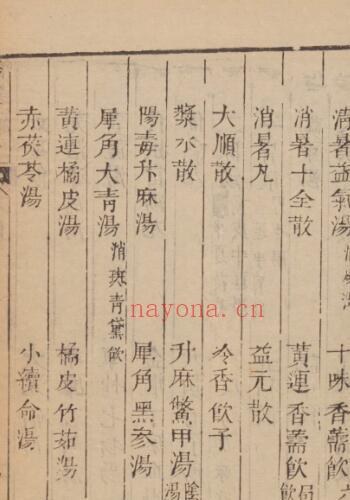 清暑益氣湯 十味香薷飲
消暑十全散 黃連香薷飲
消暑丸 益元散
大順散 冷香飲子
漿水散 升麻鱉甲湯
陽毒升麻湯 犀角黑參湯
犀角大青湯 消斑青黛飲
黃連橘皮湯 橘皮竹茹湯
赤茯苓湯 小續命湯
nayona.cn